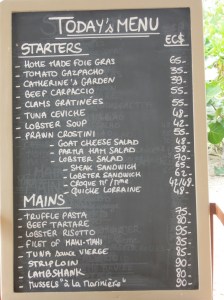 TODAY'S MENU
STARTERS EC$
- HOME MADE FOIE GRAS 65-
- TOMATO GAZPACHO 35-
- CATHERINE'S GARDEN 39-
- BEEF CARPACCIO 55-
- CLAMS GRATINÉES 55-
- TUNA CEVICHE 48-
- LOBSTER SOUP 42-
- PRAWN CROSTINI 55-
- GOAT CHEESE SALAD 48-
- PARMA HAM SALAD 58-
- LOBSTER SALAD 70-
- STEAK SANDWICH 65-
- LOBSTER SANDWICH 62-
- CROQUE Mr/Mme 42/48-
- QUICHE LORRAINE 48-
MAINS
- TRUFFLE PASTA 75
- BEEF TARTARE 80-
- LOBSTER RISOTTO 95-
- FILET OF MAHI-MAHI 85-
- TUNA SAUCE VIERGE 85-
- STRIPLOIN 90-
- LAMBSHANK 80-
- MUSSELS "à la Marinière" 90-